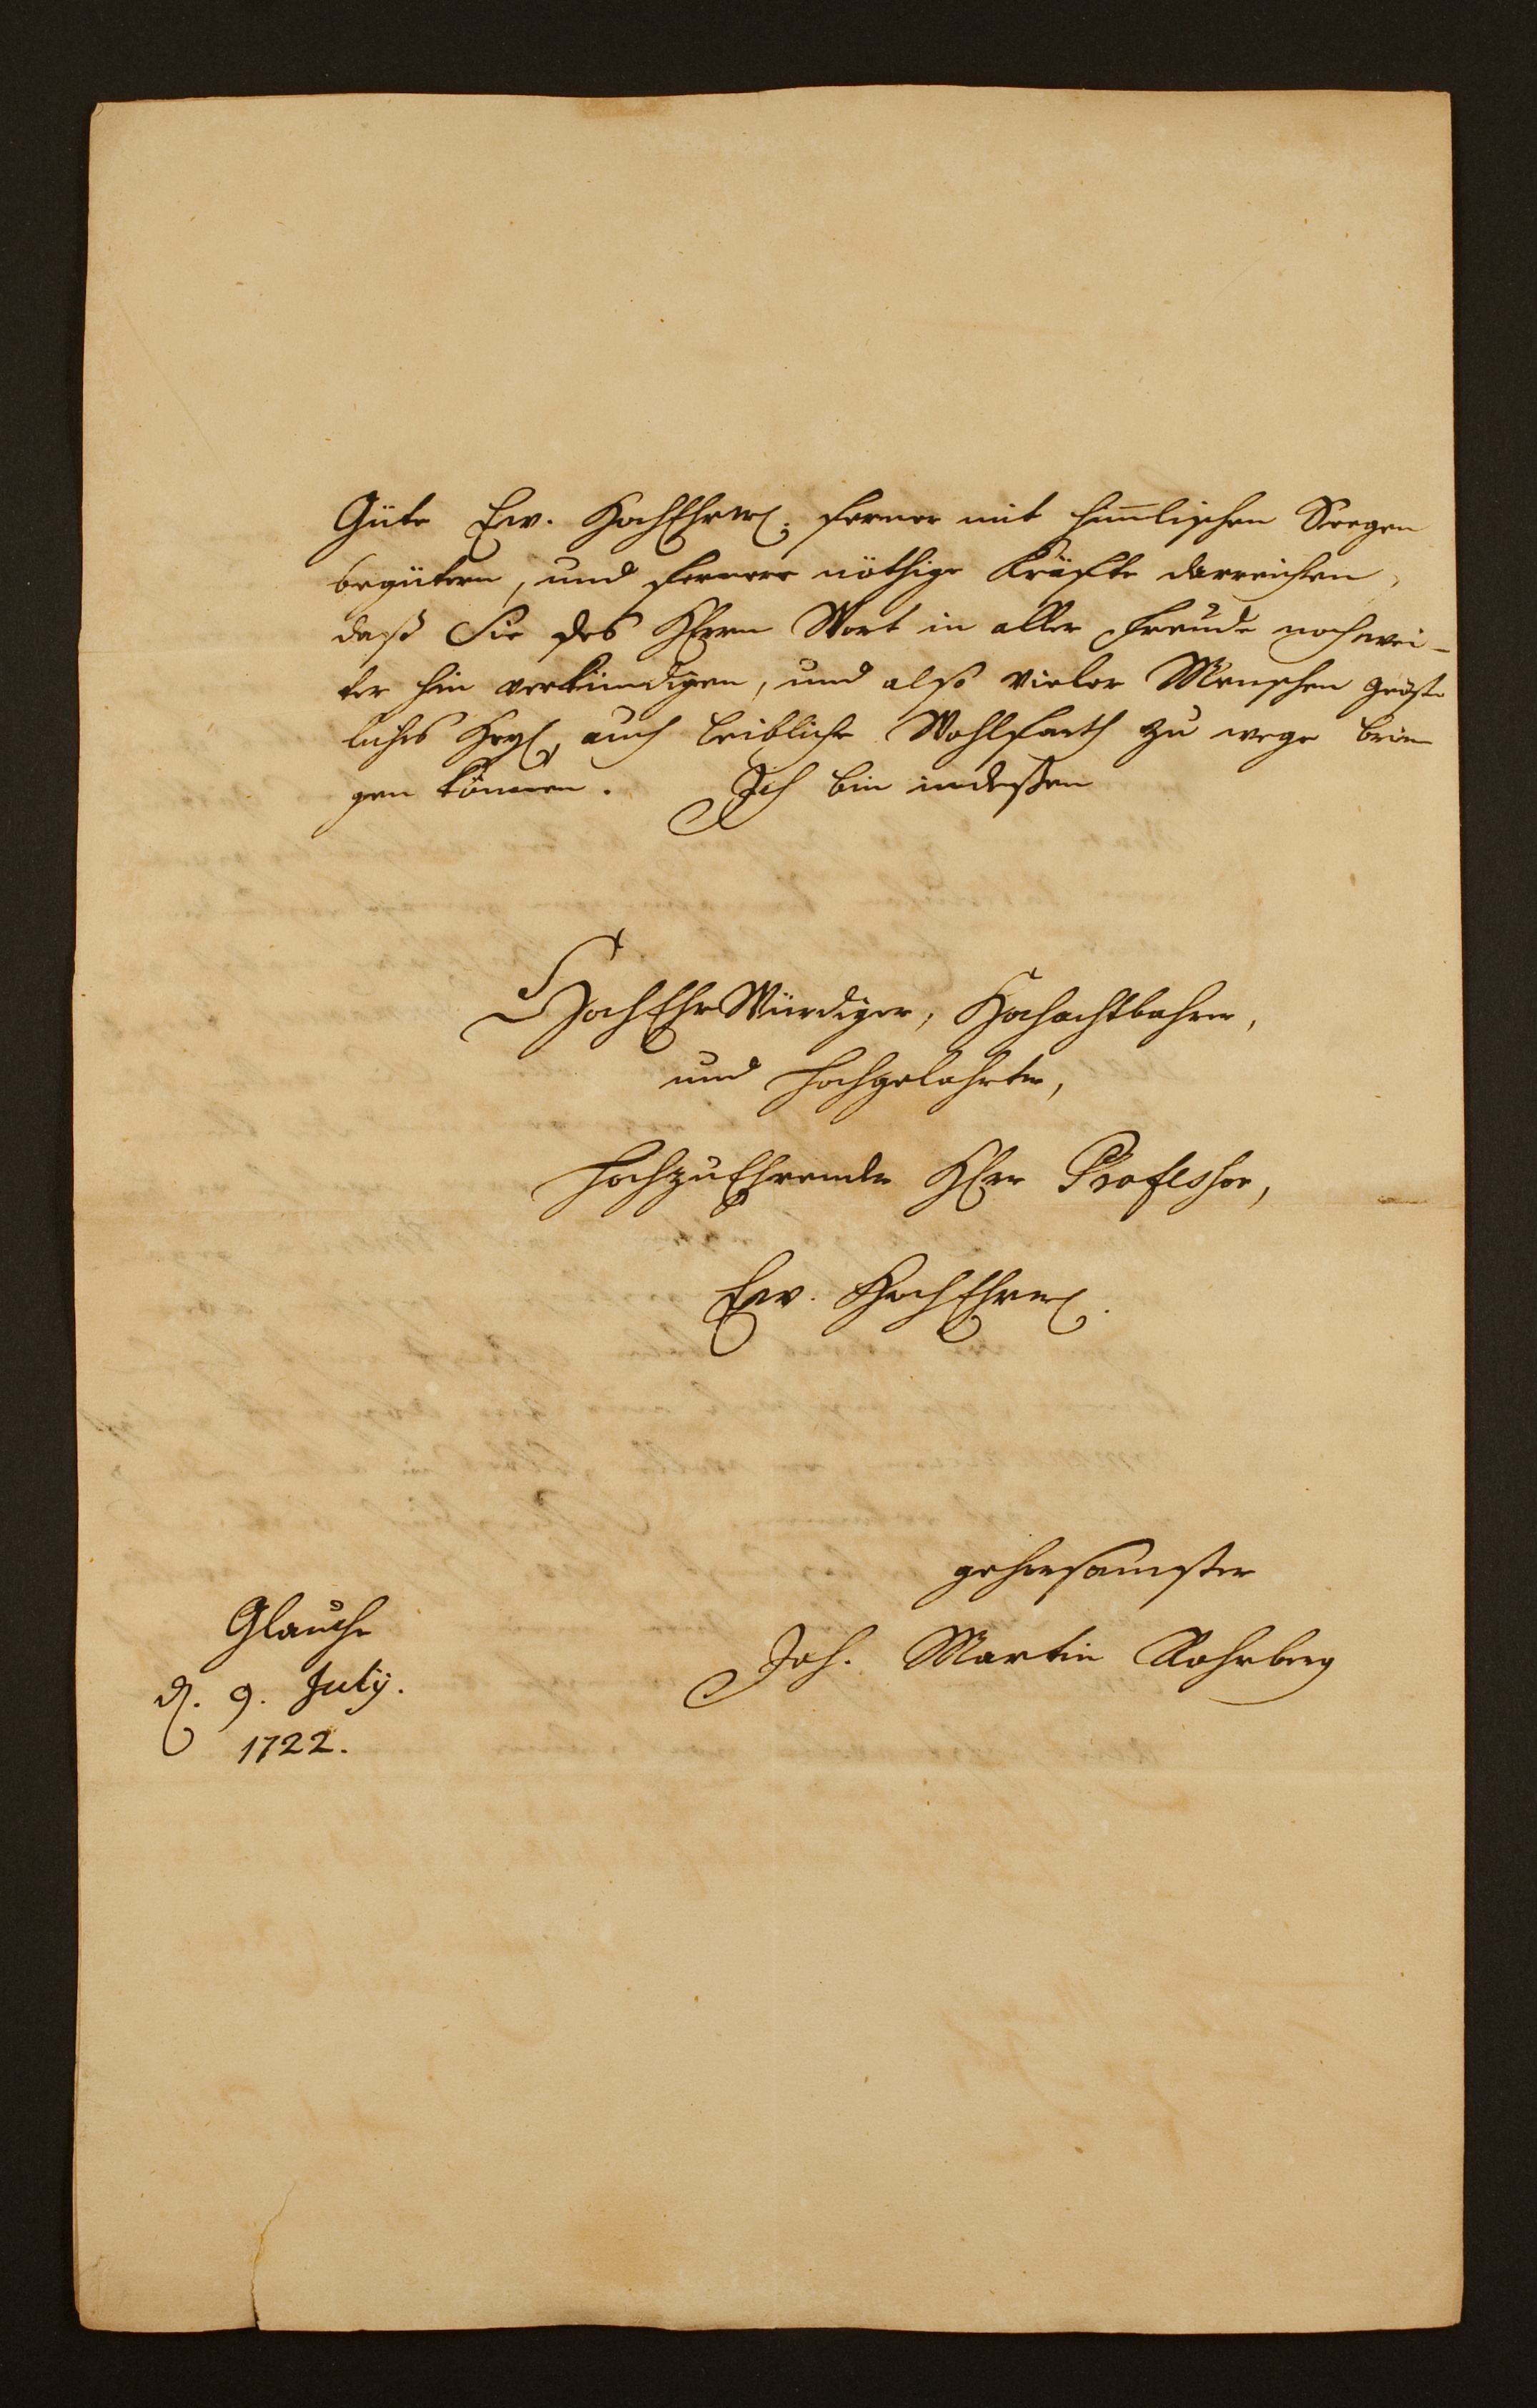 Güte Ew. HochEhrw. ferner mit him̅lischen Seegen
begütern, und fernere nöthige Kräfte darreichen,
daß Sie des HErrn Wort in aller Freude noch wei-
ter hin verkündigen, und also vieler Menschen geist-
liches Heyl, auch leibliche Wohlfarth zu wege brin
gen können. Ich bin indeßen
HochEhrWürdiger, Hochachtbahrer,
und Hochgelahrter,
HochzuEhrender HErr Professor,
Ew. HochEhrw.
gehorsamster
Joh. Martin Rohrberg
Glauche
d. 9. July.
1722.